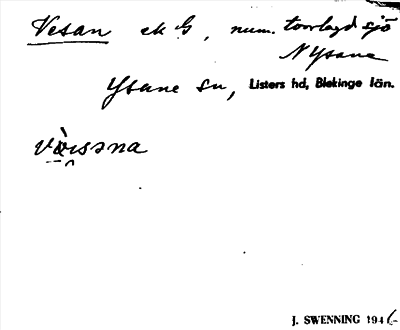 Vesan ek G, num. torrlagd sjö
N Ysane
Ysane sn, Listers hd, Blekinge län.
J. SWENNING 194